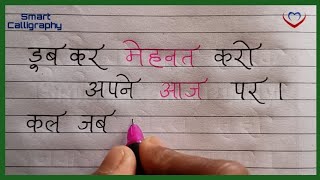 Smart
Calligraphy
डूब कर मेहनत करो
अपने आज पर ।
कल जब